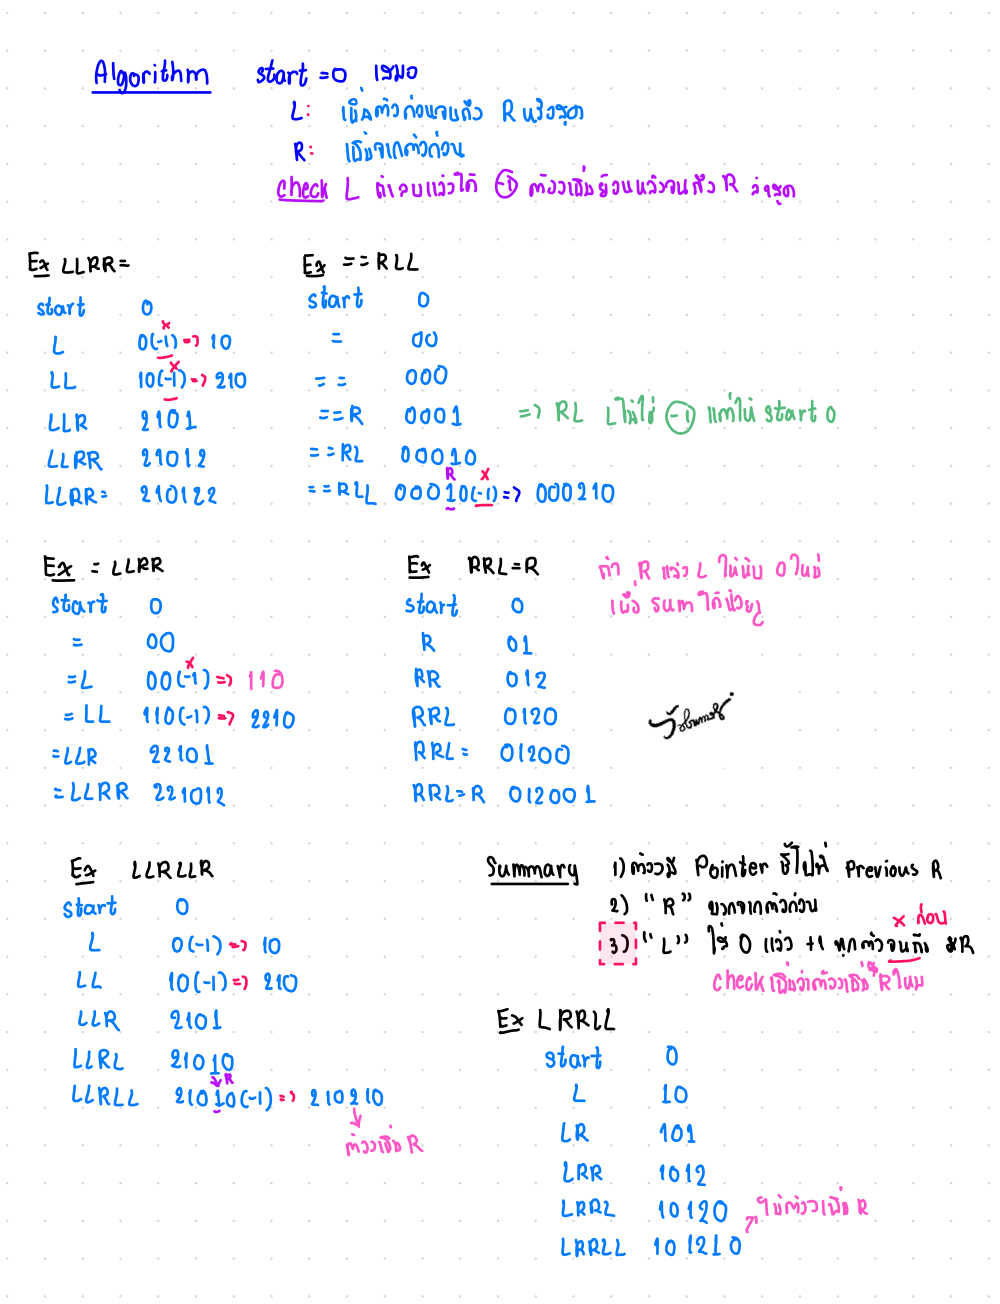 Algorithm start = 0 เสมอ
L: เพิ่มตัวก่อนจนถึง R หลังสุด
R: เพิ่มจากตัวก่อน
check L ถ้าลบแล้วได้ -1 ต้องเพิ่มย้อนหลังจนถึง R ล่าสุด
Ex LLRR=
start 0
L 0(-1) => 10
x
LL 10(-1) => 210
x
LLR 2101
LLRR 21012
LLRR= 210122
Ex ==RLL
start 0
= 00
== 000
==R 0001 => RL L ไม่ใช่ -1 แต่ให้ start 0
==RL 00010
R x
==RLL 00010(-1) => 000210
Ex =LLRR
start 0
= 00
x
=L 00(-1) => 110
=LL 110(-1) => 2210
=LLR 22101
=LLRR 221012
Ex RRL=R
ถ้า R แล้ว L ให้นับ 0 ใหม่
เพื่อ sum ได้น้อยๆ
start 0
R 01
RR 012
RRL 0120
RRL= 01200
RRL=R 012001
Ex LLRLLR
start 0
L 0(-1) => 10
LL 10(-1) => 210
LLR 2101
LLRL 21010
R
LLRLL 21010(-1) => 210210
ต้องเพิ่ม R
Summary 1) ต้องมี Pointer ชี้ไปที่ Previous R
2) "R" บวกจากตัวก่อน
x ก่อน
3) "L" ใส่ 0 แล้ว +1 ทุกตัวจนถึง R
check เพิ่มว่าต้องเพิ่ม R ไหม
Ex LRRLL
start 0
L 10
LR 101
LRR 1012
LRRL 10120
ไม่ต้องเพิ่ม R
LRRLL 101210